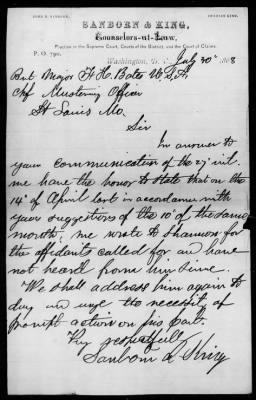 JOHN B. SANBORN. CHARLES KING.
SANBORN & KING,
Counselors-at-Law,
Practice in the Supreme Court, Courts of the District, and the Court of Claims.
P. O. 790.
Washington, D. C. July 30" 1868
Bvt Major F. H. Bates U.S.A.
Chf Mustering Officer
St Louis Mo.
Sir
In answer to
your communication of the 27" ult.
we have the honor to state that on the
14" of April last in accordance with
your suggestions of the 10" of the same
month; we wrote to Shannon for
the affidavits called for and have
not heard from him since.
We shall address him again to
day and urge the necessity of
prompt action on his part.
Very respectfully
Sanborn & King